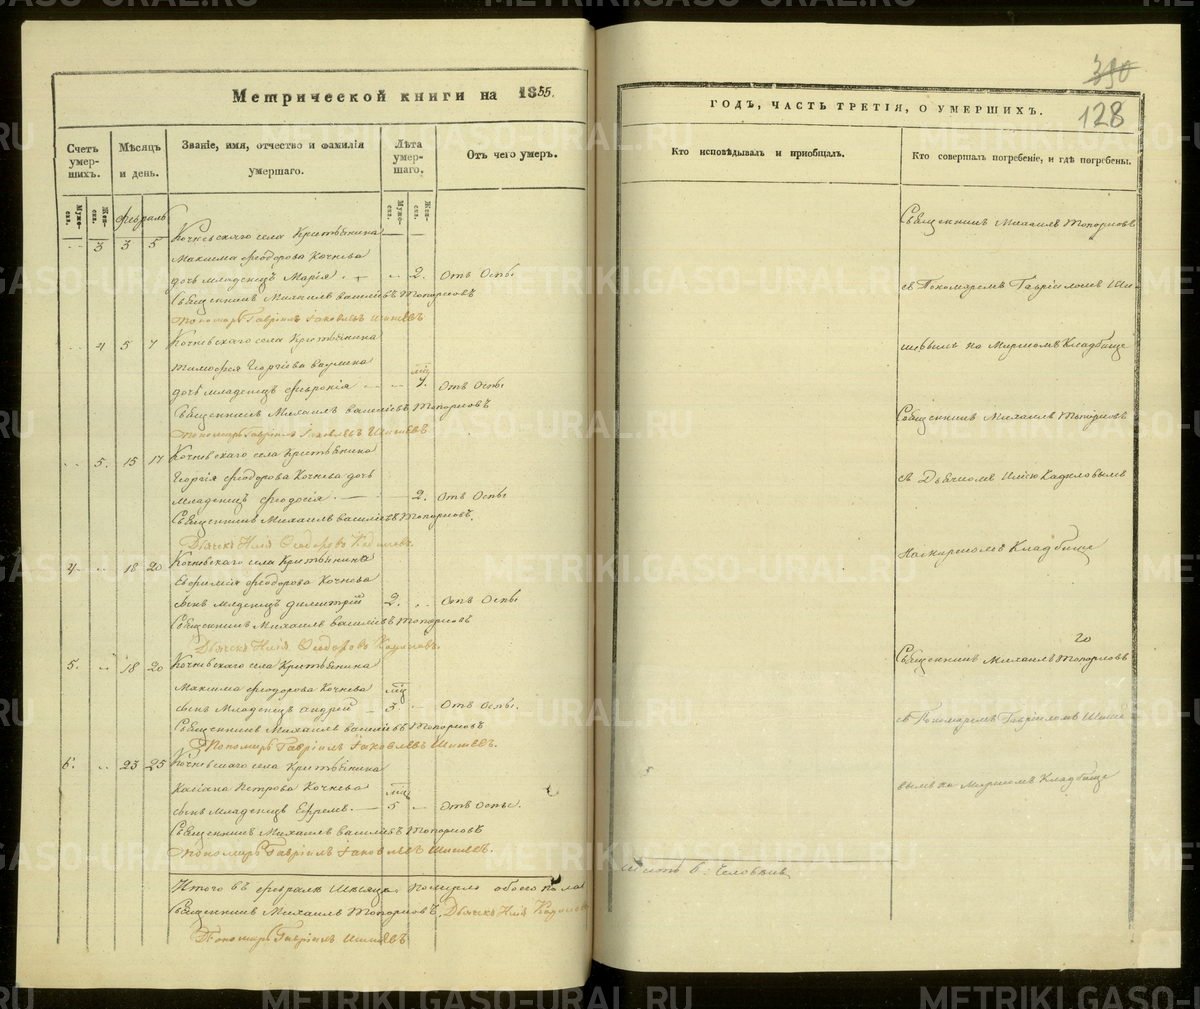 Метрической книги на 1855.
Счетъ умершихъ.
Мѣсяцъ и день.
Званіе, имя, отчество и фамилія умершаго.
Лѣта умершаго.
Отъ чего умеръ.
Мужеск. Женск.
Февраль
Мужеск. Женск.
3 3 5 Кочневскаго села Крестьянина
Максима Феодорова Кочнева
дочь младенецъ Марія . 2. Отъ Оспы
Священникъ Михаилъ Васильевъ Топорковъ
Пономарь Гавріилъ Іаковлевъ Шишевъ
4 5 7 Кочневскаго села Крестьянина
Тимофея Георгіева
дочь младенецъ Феврония мц 7. Отъ Оспы
Священникъ Михаилъ Васильевъ Топорковъ
Пономарь Гавріилъ Іаковлевъ Шишевъ
5. 15 17 Кочневскаго села Крестьянина
Георгія Феодорова Кочнева дочь
младенецъ Феодосія. 2. Отъ Оспы
Священникъ Михаилъ Васильевъ Топорковъ.
Дьячекъ Илія Ѳеодоровъ
4. 18 20 Кочневскаго села Крестьянина
Евфимія Феодорова Кочнева
сынъ младенецъ Димитрій 2. Отъ Оспы
Священникъ Михаилъ Васильевъ Топорковъ
Дьячекъ Илія Ѳеодоровъ
5. 18 20 Кочневскаго села Крестьянина
Максима Феодорова Кочнева
сынъ Младенецъ Андрей мц 3. Отъ Оспы.
Священникъ Михаилъ Васильевъ Топорковъ
Пономарь Гавріилъ Іаковлевъ Шишевъ.
6. 23 25 Кочневскаго села Крестьянина
Касіана Петрова Кочнева
сынъ Младенецъ Ефремъ. мц 5 Отъ Оспы.
Священникъ Михаилъ Васильевъ Топорковъ
Пономарь Гавріилъ Іаковлевъ Шишевъ.
Итого въ февралѣ Мѣсяцѣ померло обоего пола
Священникъ Михаилъ Топорковъ. Дьячекъ Илія
Пономарь Гавріилъ Шишевъ
390
128
ГОДЪ, ЧАСТЬ ТРЕТІЯ, О УМЕРШИХЪ.
Кто исповѣдывалъ и пріобщалъ.
Кто совершалъ погребеніе, и гдѣ погребены.
Священникъ Михаилъ Топорковъ
съ Пономаремъ Гавріиломъ Ши-
шевымъ на Мірскомъ Кладбище
Священникъ Михаилъ Топорковъ
съ Дьячкомъ Иліею
На мирскомъ Кладбище
20
Священникъ Михаилъ Топорковъ
съ Пономаремъ Гавріиломъ Шише
вымъ на Мірскомъ Кладбище
шесть 6. человѣкъ
METRIKI.GASO-URAL.RU